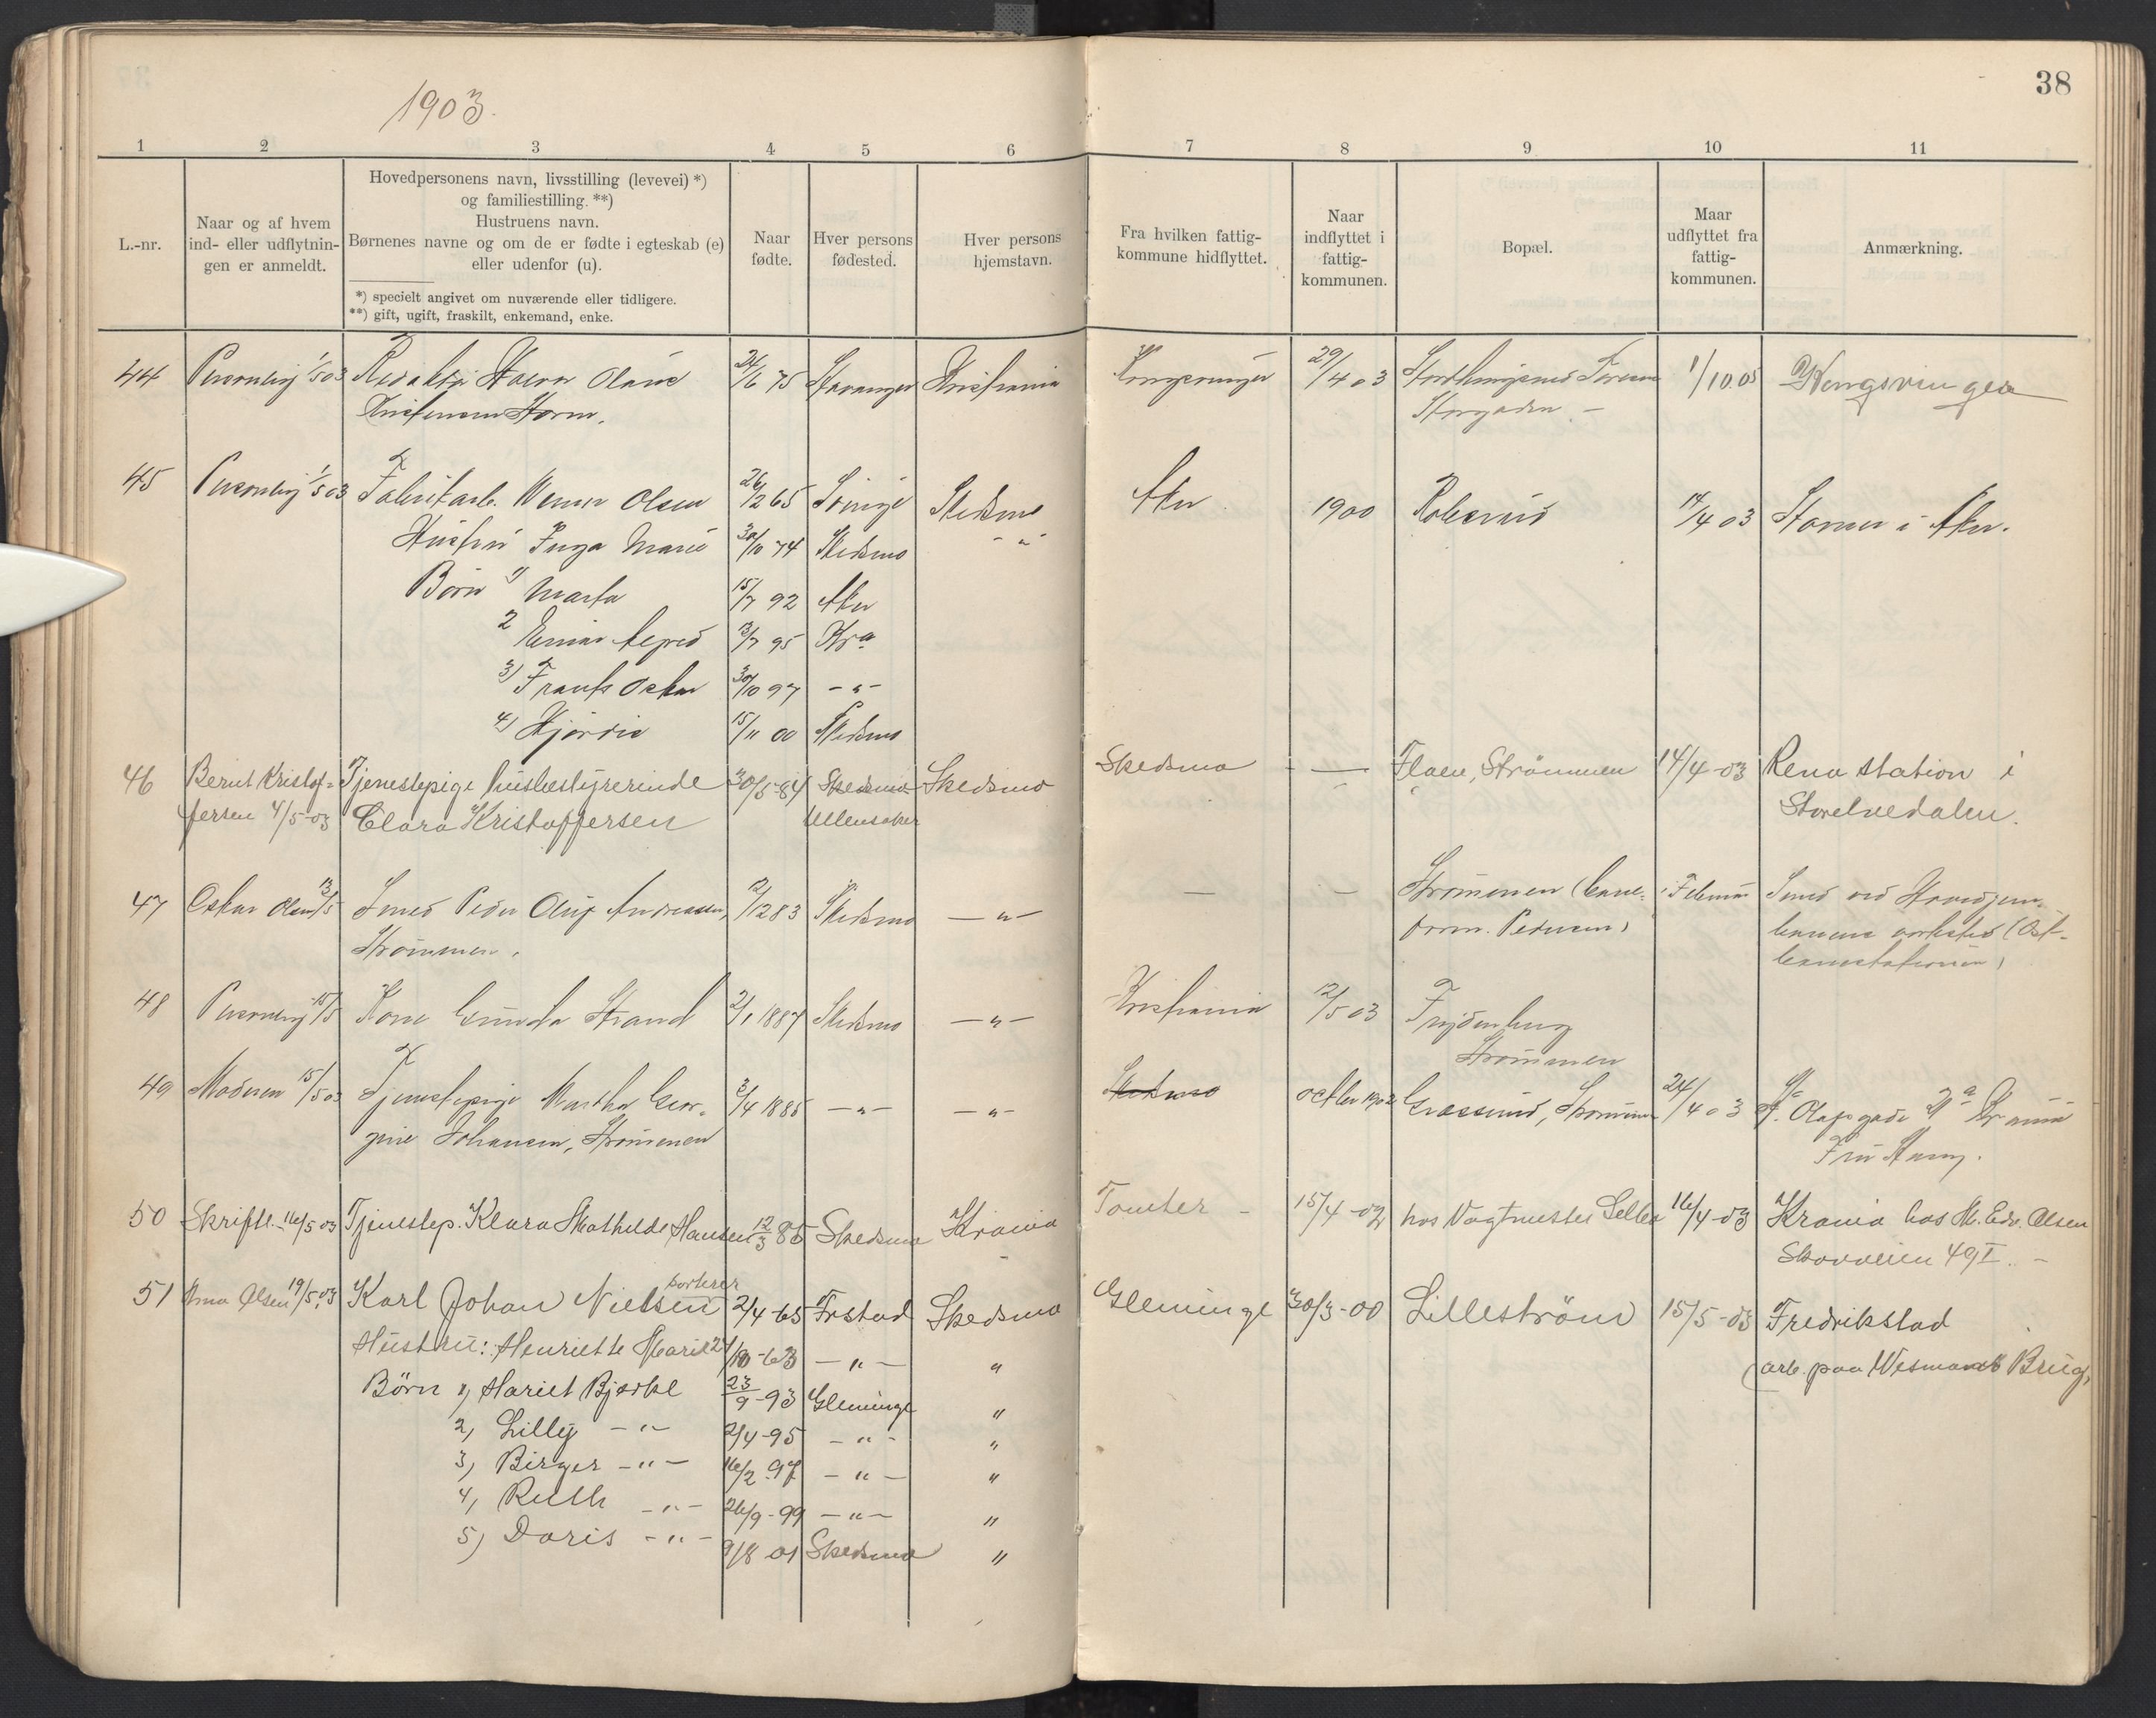 38
1903.
1 2 3 4 5 6 7 8 9 10 11
L.-nr.
Naar og af hvem
ind- eller udflytnin-
gen er anmeldt.
Hovedpersonens navn, livsstilling (levevei) *)
og familiestilling. **)
Hustruens navn.
Børnenes navne og om de er fødte i egteskab (e)
eller udenfor (u).
*) specielt angivet om nuværende eller tidligere.
**) gift, ugift, fraskilt, enkemand, enke.
Naar
fødte.
Hver persons
fødested.
Hver persons
hjemstavn.
Fra hvilken fattig-
kommune hidflyttet.
Naar
indflyttet i
fattig-
kommunen.
Bopæl.
Maar
udflyttet fra
fattig-
kommunen.
Anmærkning.
44 Personlig 1/5 03 Redaktør Olaus 24/6 75 Stavanger Kristiania Kongsvinger 29/4 03 1/10.05 Kongsvinger
Kristensen Storm. Storgaden –
45 Personlig 1/5 03 Fabrikarb. Werner Olsen 26/12 65 Skedsmo Aker 1900 Robsrud 14/4 03 i Aker.
Hustru Inga Marie 30/10 74 Skedsmo - " -
Børn 1) Marta 15/7 92 Aker
2 Einar 13/7 95 Kra
3) Frants Oskar 30/10 97 - " -
4) Hjørdis 15/11 00 Skedsmo
46 Bernt Kristof= Tjenestepige husbestyrerinde 30/5-84 Skedsmo Skedsmo Skedsmo — Flaen, Strømmen 14/4-03 Rena station i
fersen 4/5-03 Clara Kristoffersen Ullensaker Storelvedalen.
47 Oskar Olsen 13/5 Smed Peder Oluf Andreassen, 2/12 83 Skedsmo — " — — — Strømmen (bane- i Februar Smed ved Hovedjern-
Strømmen. form. Pedersen) banens verksted (Øst-
banestationen)
48 Personlig 15/5 Kone Gunda Strand 2/1 1887 Skedsmo — " — Kristiania 12/5 03 Frydenberg
Strømmen
49 Moderen 15/5 03 Tjenestepige Martha Geor- 3/4 1885 — " — — " — Skedsmo october 1902 Strømmen 24/4 03 St. Olafsgade Krania
gine Johansen, Strømmen Fru
50 Skriftl. 16/5 03 Tjenestep. Klara Mathilde Hansen 12/3 85 Skedsmo Krania Tomter - 15/4-02 hos Vogtmester 16/4-03 Krania hos M. Edv. Olsen
Skovveien 49 I. –
51 Olsen 19/5 03 Karl Johan Nielsen sorterer 2/4-65 Frstad Skedsmo Glemminge 30/3-00 Lillestrøm 15/5-03 Fredrikstad
Hustru: Henriette Marie 21/10-63 — " — " (arb. paa Wesmanns Brug,
Børn 1, Hariet Bjerke 23/9-93 Glemminge "
2, Lilly - " - 2/4-95 - " - "
3, Birger - " - 16/2 97 - " - "
4, Ruth - " - 26/9-99 - " - "
5) Doris - " - 9/8 01 Skedsmo "